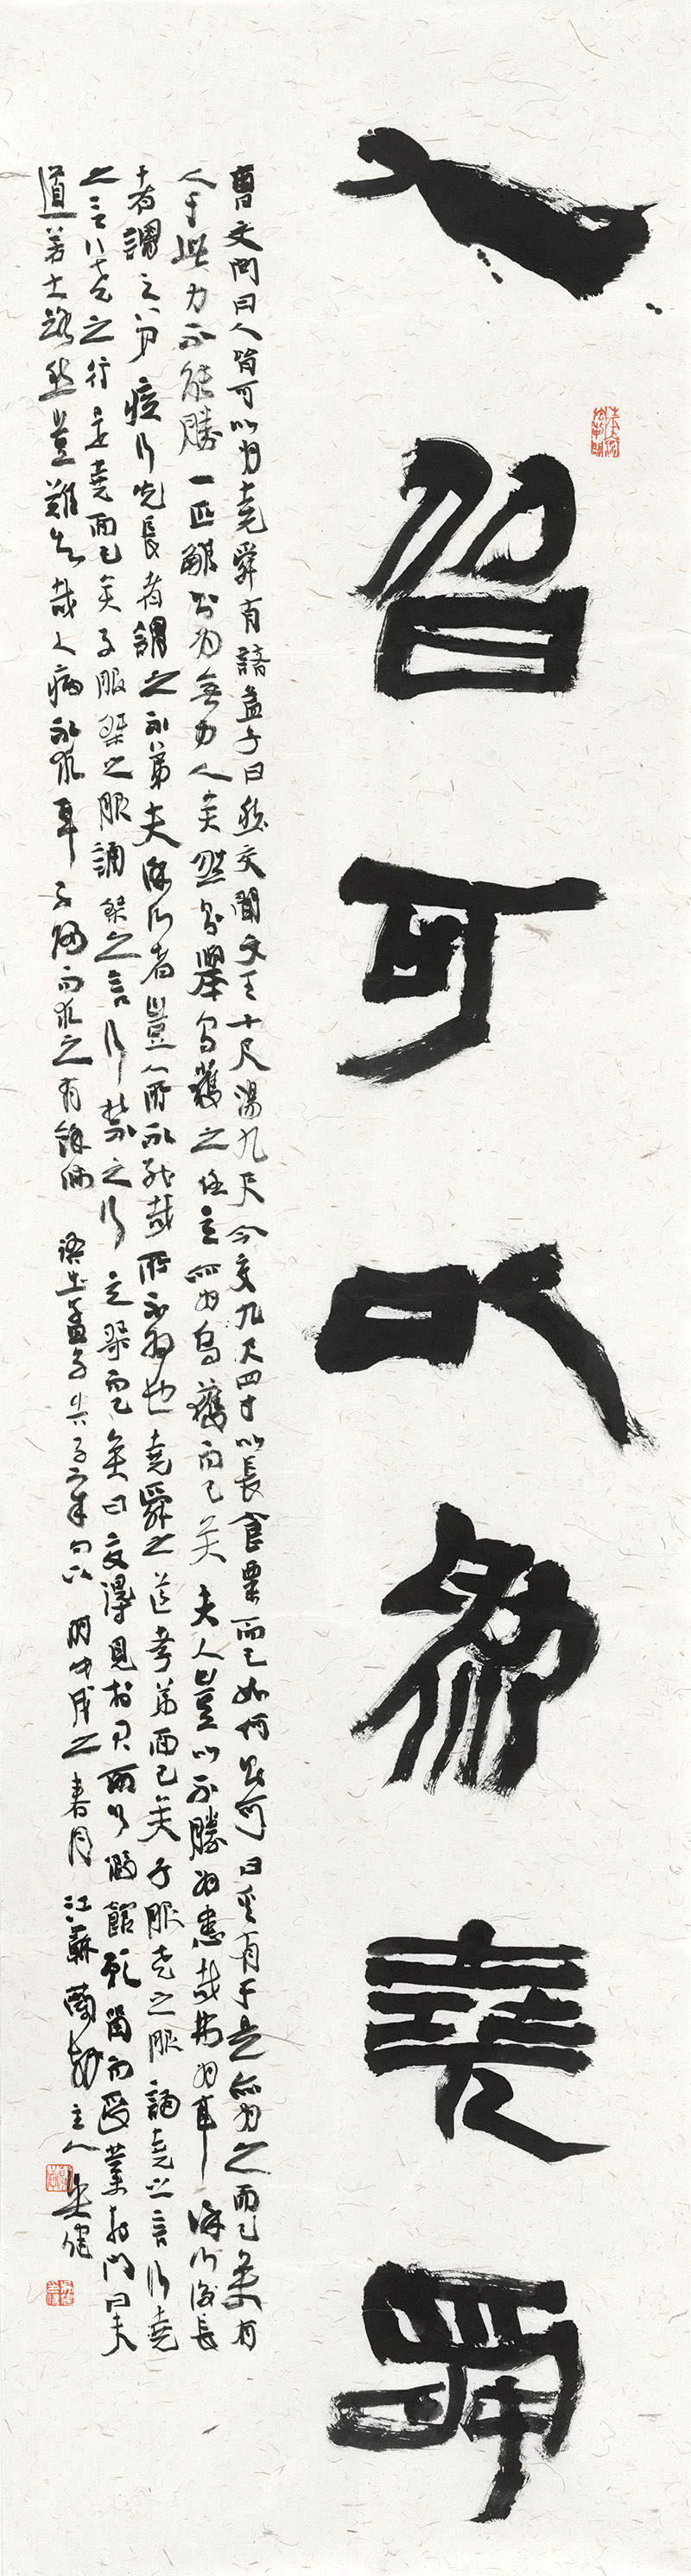 人皆可以為堯舜
曹交問曰人皆可以為堯舜有諸孟子曰然交聞文王十尺湯九尺今交九尺四寸以長食粟而已如何則可曰奚有于是亦為之而已矣有
人于此力不能勝一匹雛則為無力人矣然則舉烏獲之任是亦為烏獲而已矣夫人豈以不勝為患哉弗為耳徐行後長
者謂之弟疾行先長者謂之不弟夫徐行者豈人所不能哉所不為也堯舜之道孝弟而已矣子服堯之服誦堯之言行堯
之行是堯而已矣子服桀之服誦桀之言行桀之行是桀而已矣曰交得見於君可以假館願留而受業於門曰夫
道若大路然豈難知哉人病不求耳子歸而求之有餘師 語出孟子告子章句下 戊戌之春月江蘇 主人